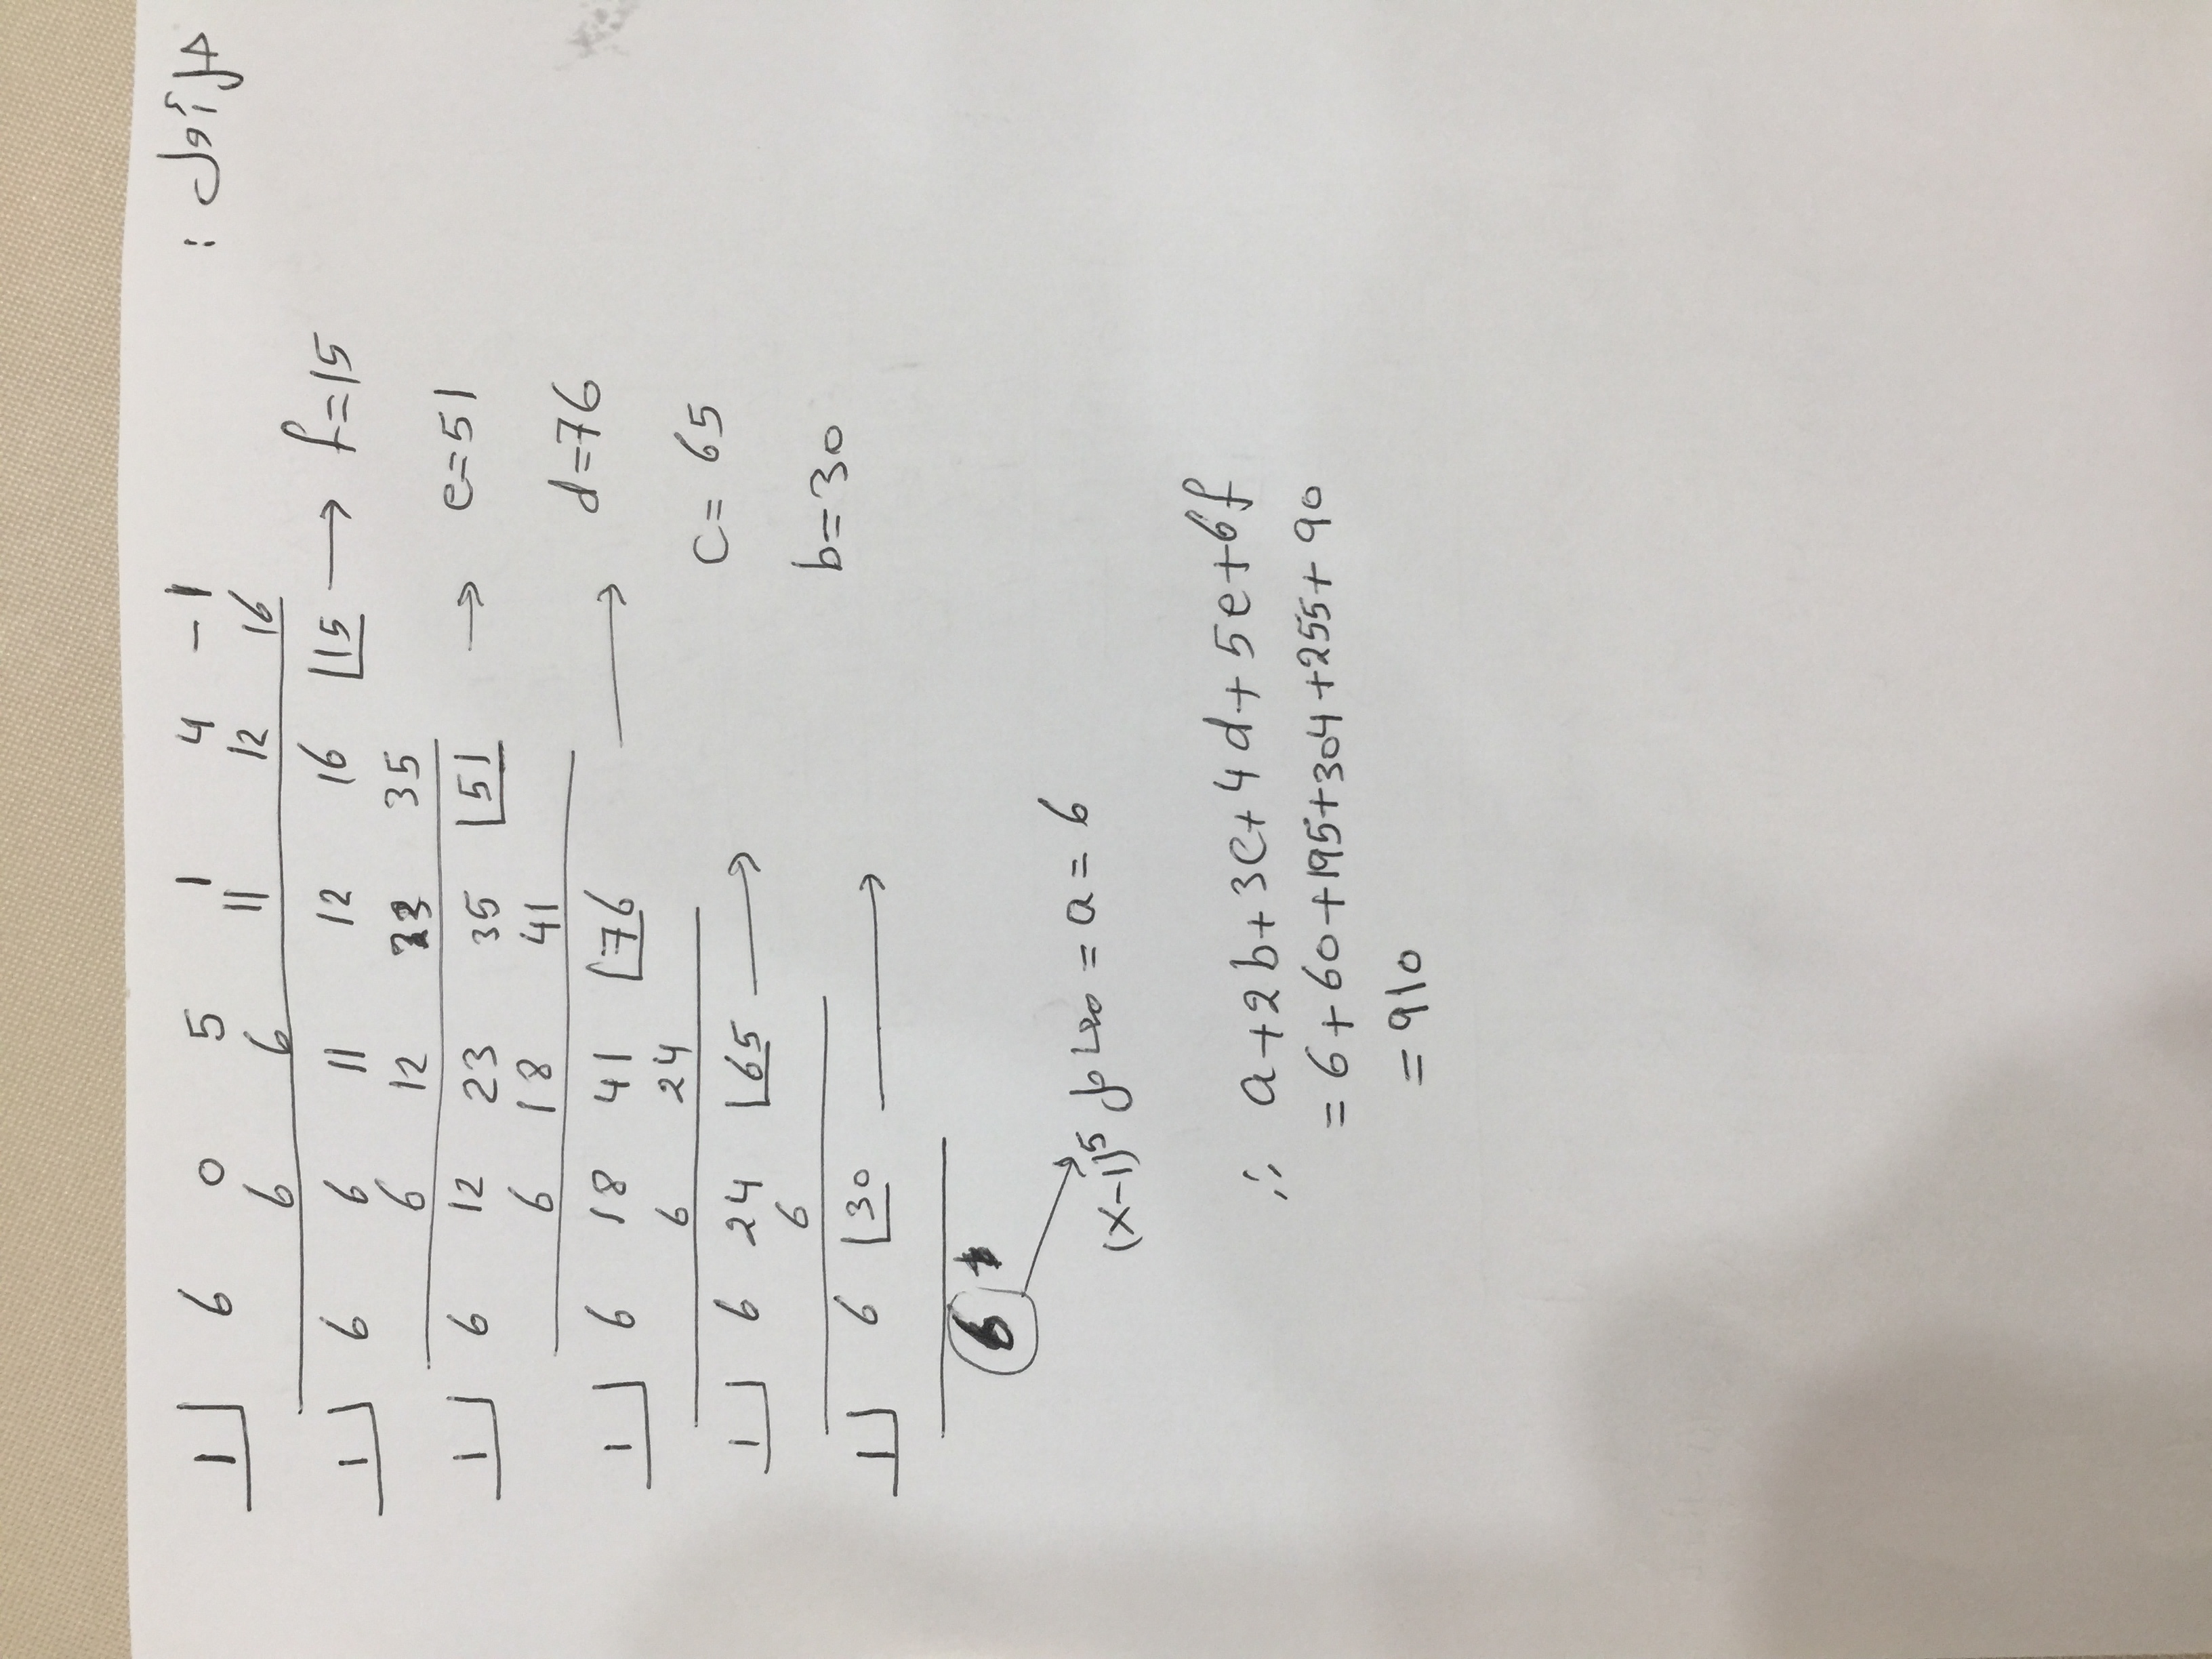 풀이 :
1 6 0 5 1 4 -1
6 6 11 12 16
1 6 6 11 12 16 15 → f=15
6 12 23 35
1 6 12 23 35 51 → e=51
6 18 41
1 6 18 41 76 → d=76
6 24
1 6 24 65 → c=65
6
1 6 30 → b=30
6
(x-1)⁵ = a = 6
∴ a+2b+3c+4d+5e+6f
=6+60+195+304+255+90
=910